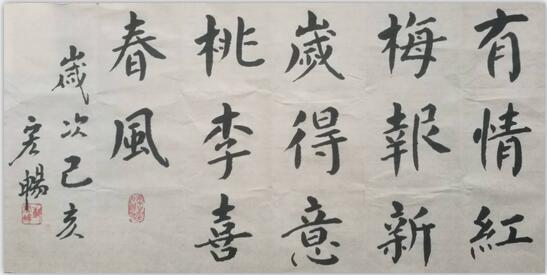 有情紅
梅報新
歲得意
桃李喜
春風
歲次己亥
宏暢